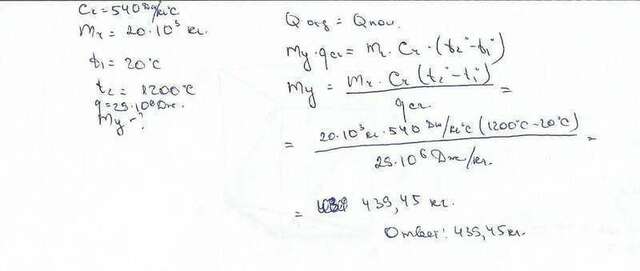 Cг = 540 Дж/кг°C
Mг = 20·10³ кг.
t1 = 20°C
t2 = 1200°C
q = 29·10⁶ Дж.
My - ?
Q отд = Q пол.
My·qсг = Mг·Cг·(t2° - t1°)
My = Mг·Cг(t2° - t1°) / qсг =
= 20·10³ кг·540 Дж/кг°C (1200°C - 20°C) / 29·10⁶ Дж/кг. =
= 439,45 кг.
Ответ: 439,45 кг.